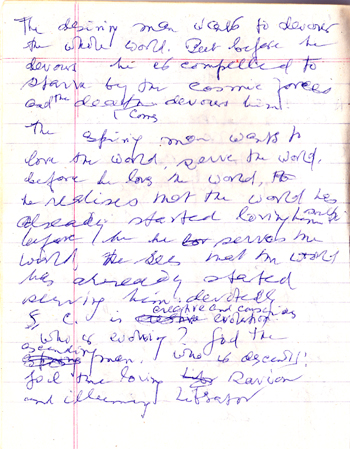 The desiring man wants to devour
the whole world. But before he
devours he is compelled to
starve by the cosmic forces
and the death comes devours him.
The aspiring man wants to
love the world, serve the world.
before he loves the world,
he realises that the world has
already started loving him
before he serves the
world he sees that the world
has already started
serving him devotedly
is creative and conscious evolution
Who is evolving? God the
ascending man. Who is descends?
God the loving Savior
and illumining Liberator